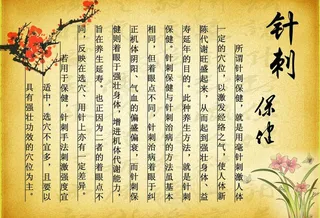 针刺保健
所谓针刺保健，就是用毫针刺激人体
一定的穴位，以激发经络之气，使人体新
陈代谢旺盛起来，从而起到强壮身体、益
寿延年的目的。此种养生方法，就是针刺
保健。针刺保健与针刺治病的方法虽基本
相同，但着眼点不同，针刺治病着眼于纠
正机体阴阳、气血的偏盛偏衰，而针刺保
健则着眼于强壮身体，增进机体代谢能力，
旨在养生延寿。也正因为二者的着眼点不
同，反映在选穴、用针上亦有一定差异。
若用于保健，针刺手法刺激强度宜
适中，选穴不宜多，且要以
具有强壮功效的穴位为主。